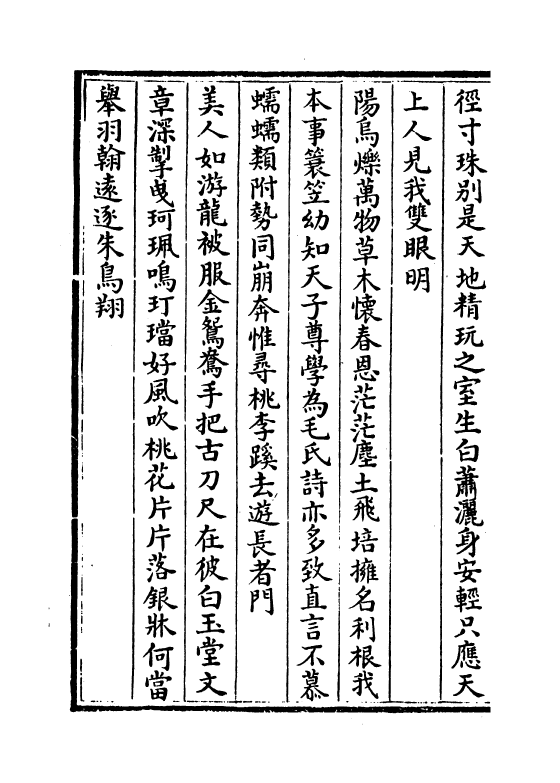 徑寸珠别是天地精玩之室生白蕭灑身安輕只應天
上人見我雙眼明
陽烏爍萬物草木懷春恩茫茫塵土飛培擁名利根我
本事簑笠幼知天子尊學為毛氏詩亦多致直言不慕
蠕蠕類附勢同崩奔惟尋桃李蹊去遊長者門
美人如游龍被服金鴛鴦手把古刀尺在彼白玉堂文
章深掣曵珂珮鳴玎璫好風吹桃花片片落銀牀何當
舉羽翰遠逐朱鳥翔